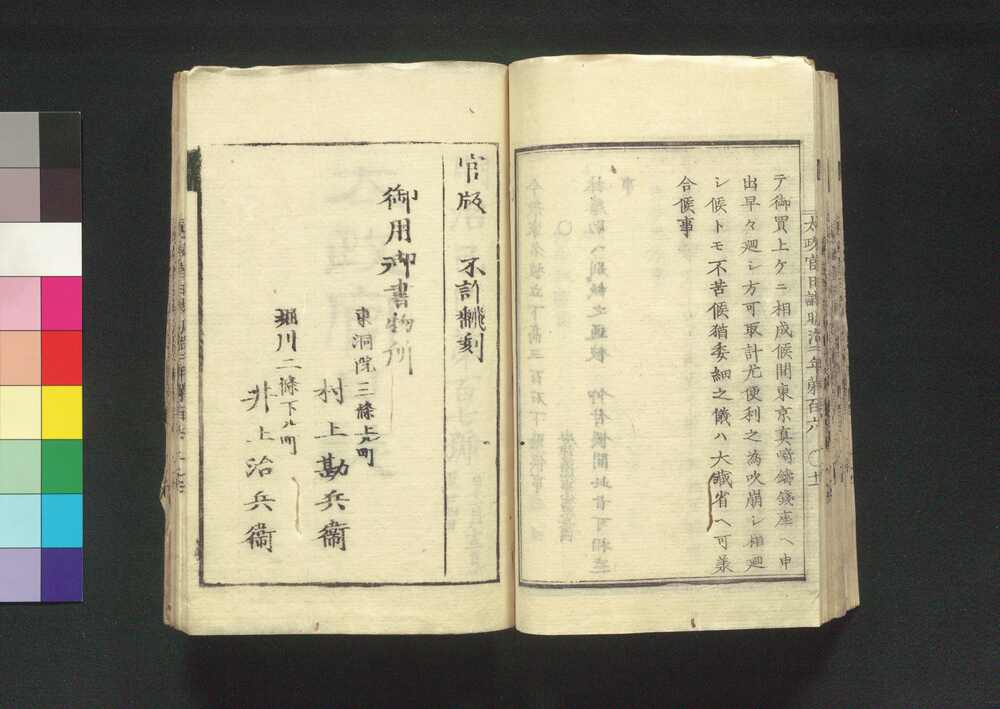 テ御買上ケニ相成候間東京真崎鋳錢座ヘ申
出早々廻シ方可取計尤便利之為吹崩シ相廻
シ候トモ不苦候猶委細之儀ハ大藏省ヘ可承
合候事
太政官日誌明治二年第百六 〇十一
官版 不許飜刻
御用御書物所
東洞院三條上ル町
村上勘兵衞
堀川二條下ル町
井上治兵衞